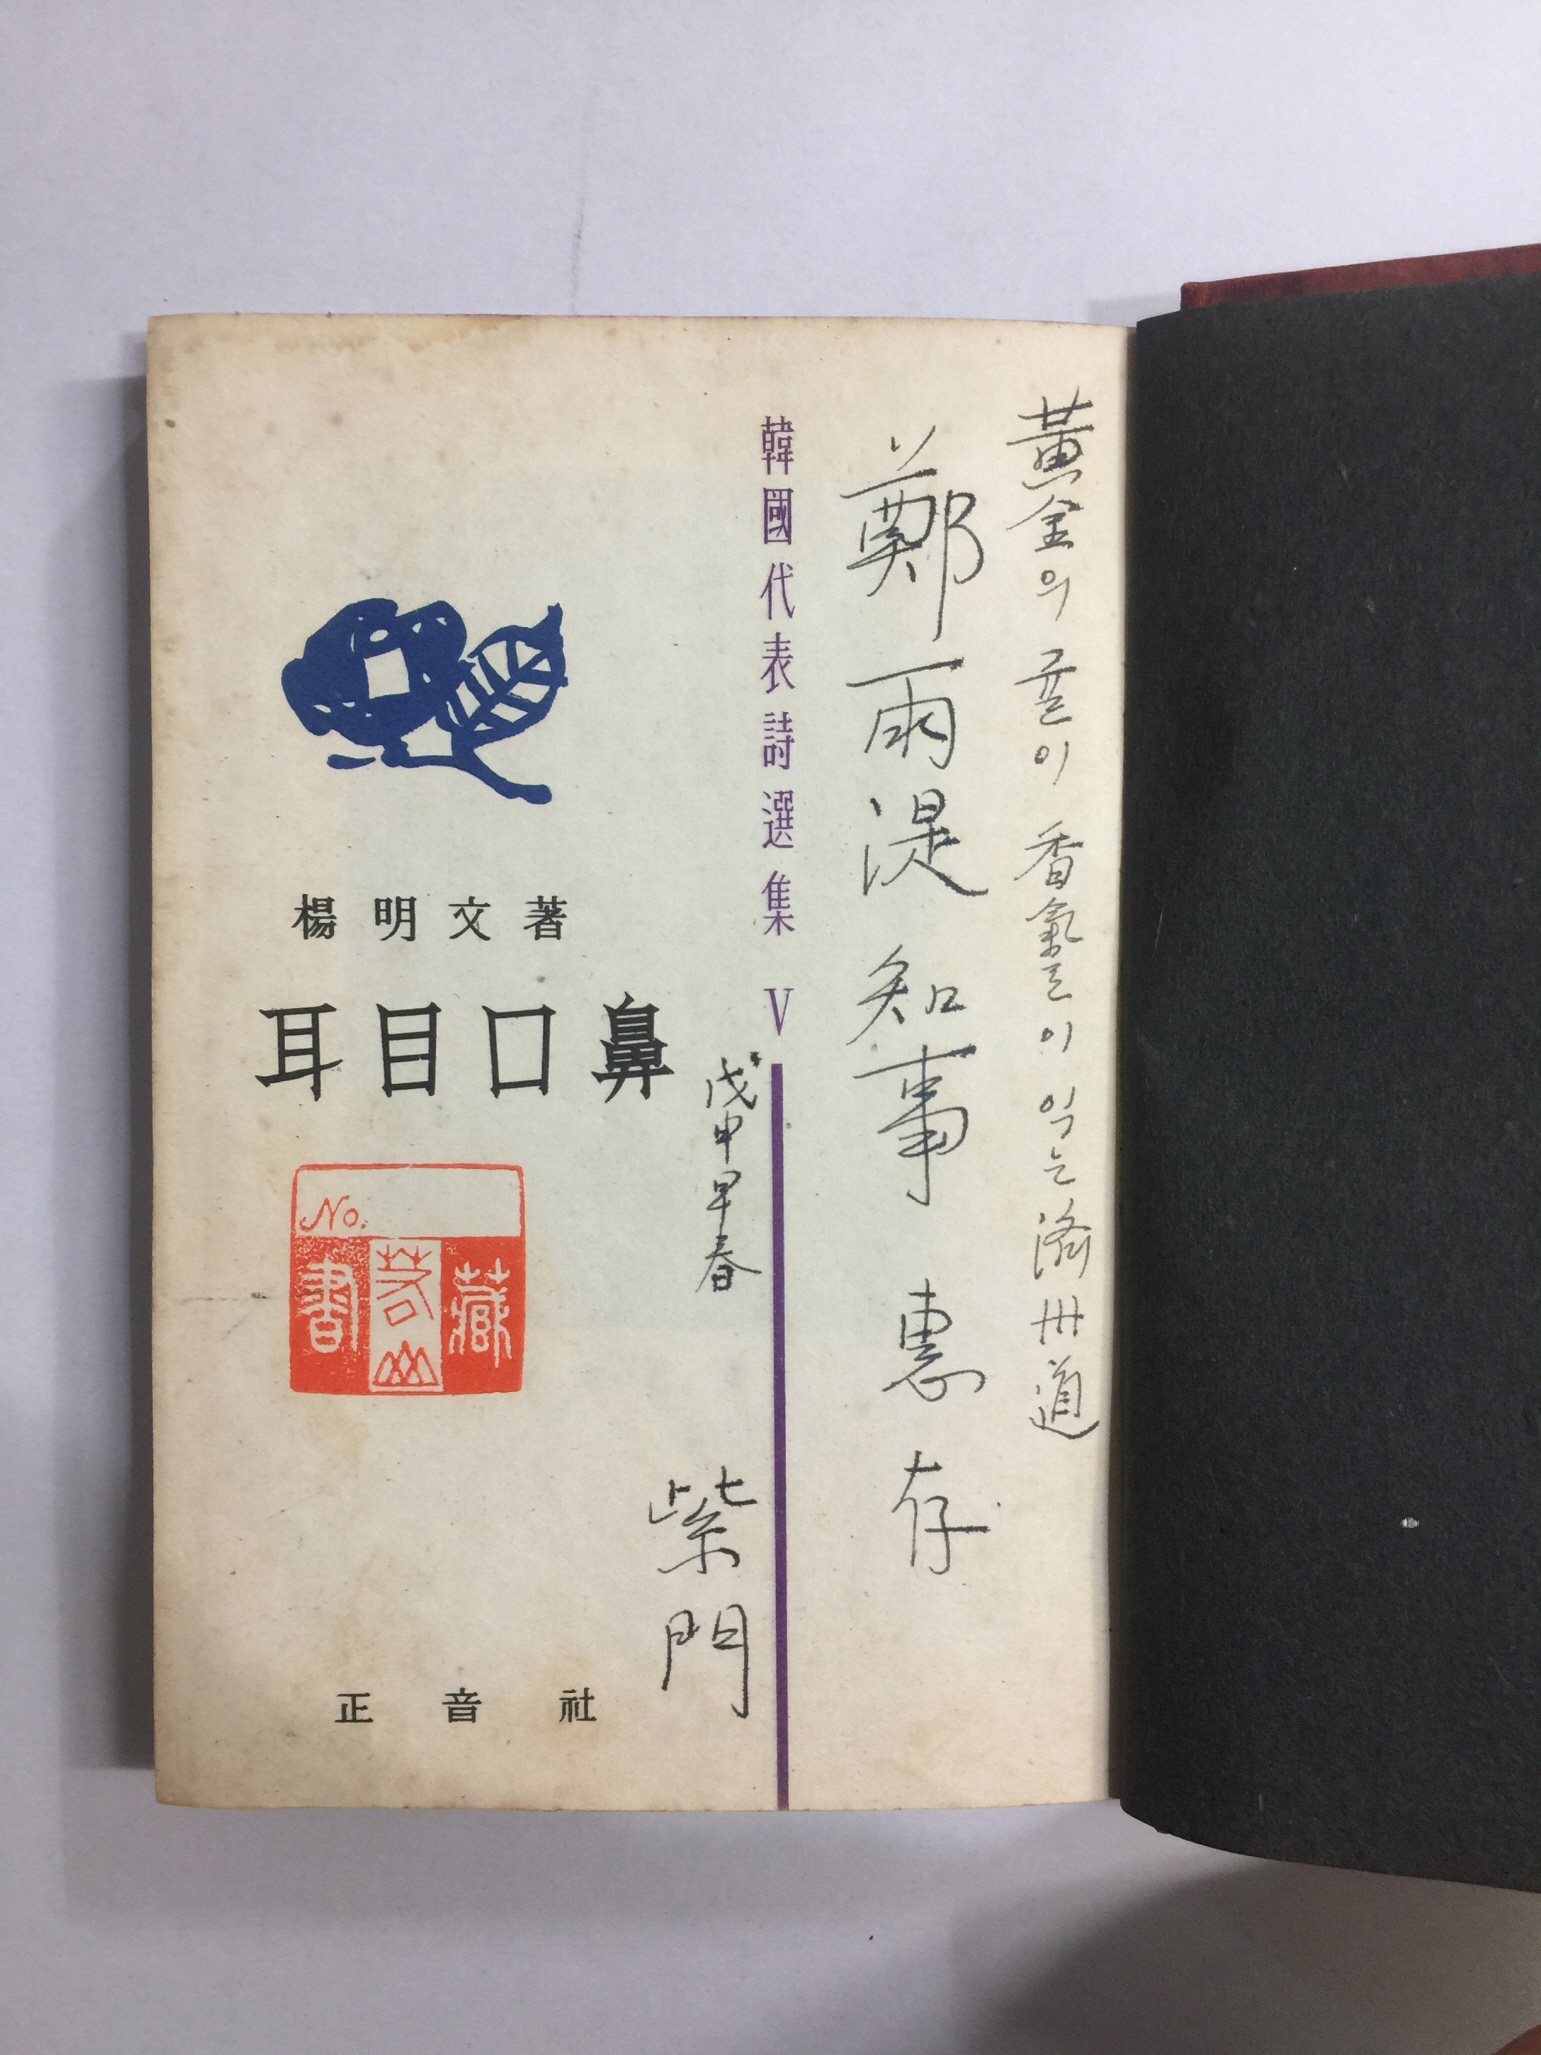 黃金의 귤이 香氣로이 익는 濟州道
鄭雨湜 知事 惠存
韓國代表詩選集 V
戊申早春
紫門
楊明文著
耳目口鼻
No.
藏
書
正音社